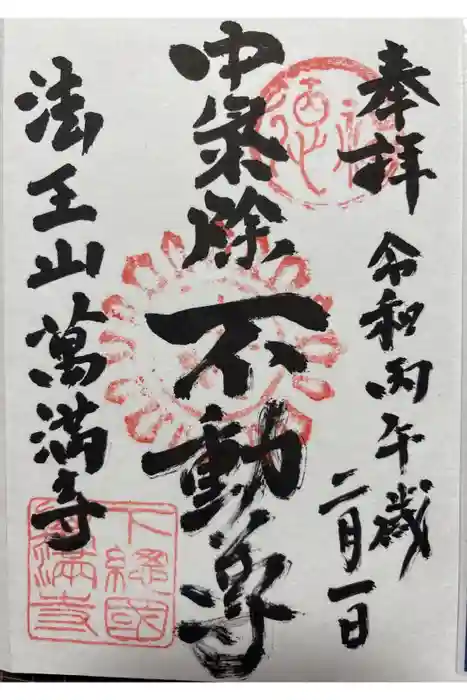 奉拝
令和丙午歳
二月一日
中氣除
不動尊
法王山萬満寺
下總國
萬満寺